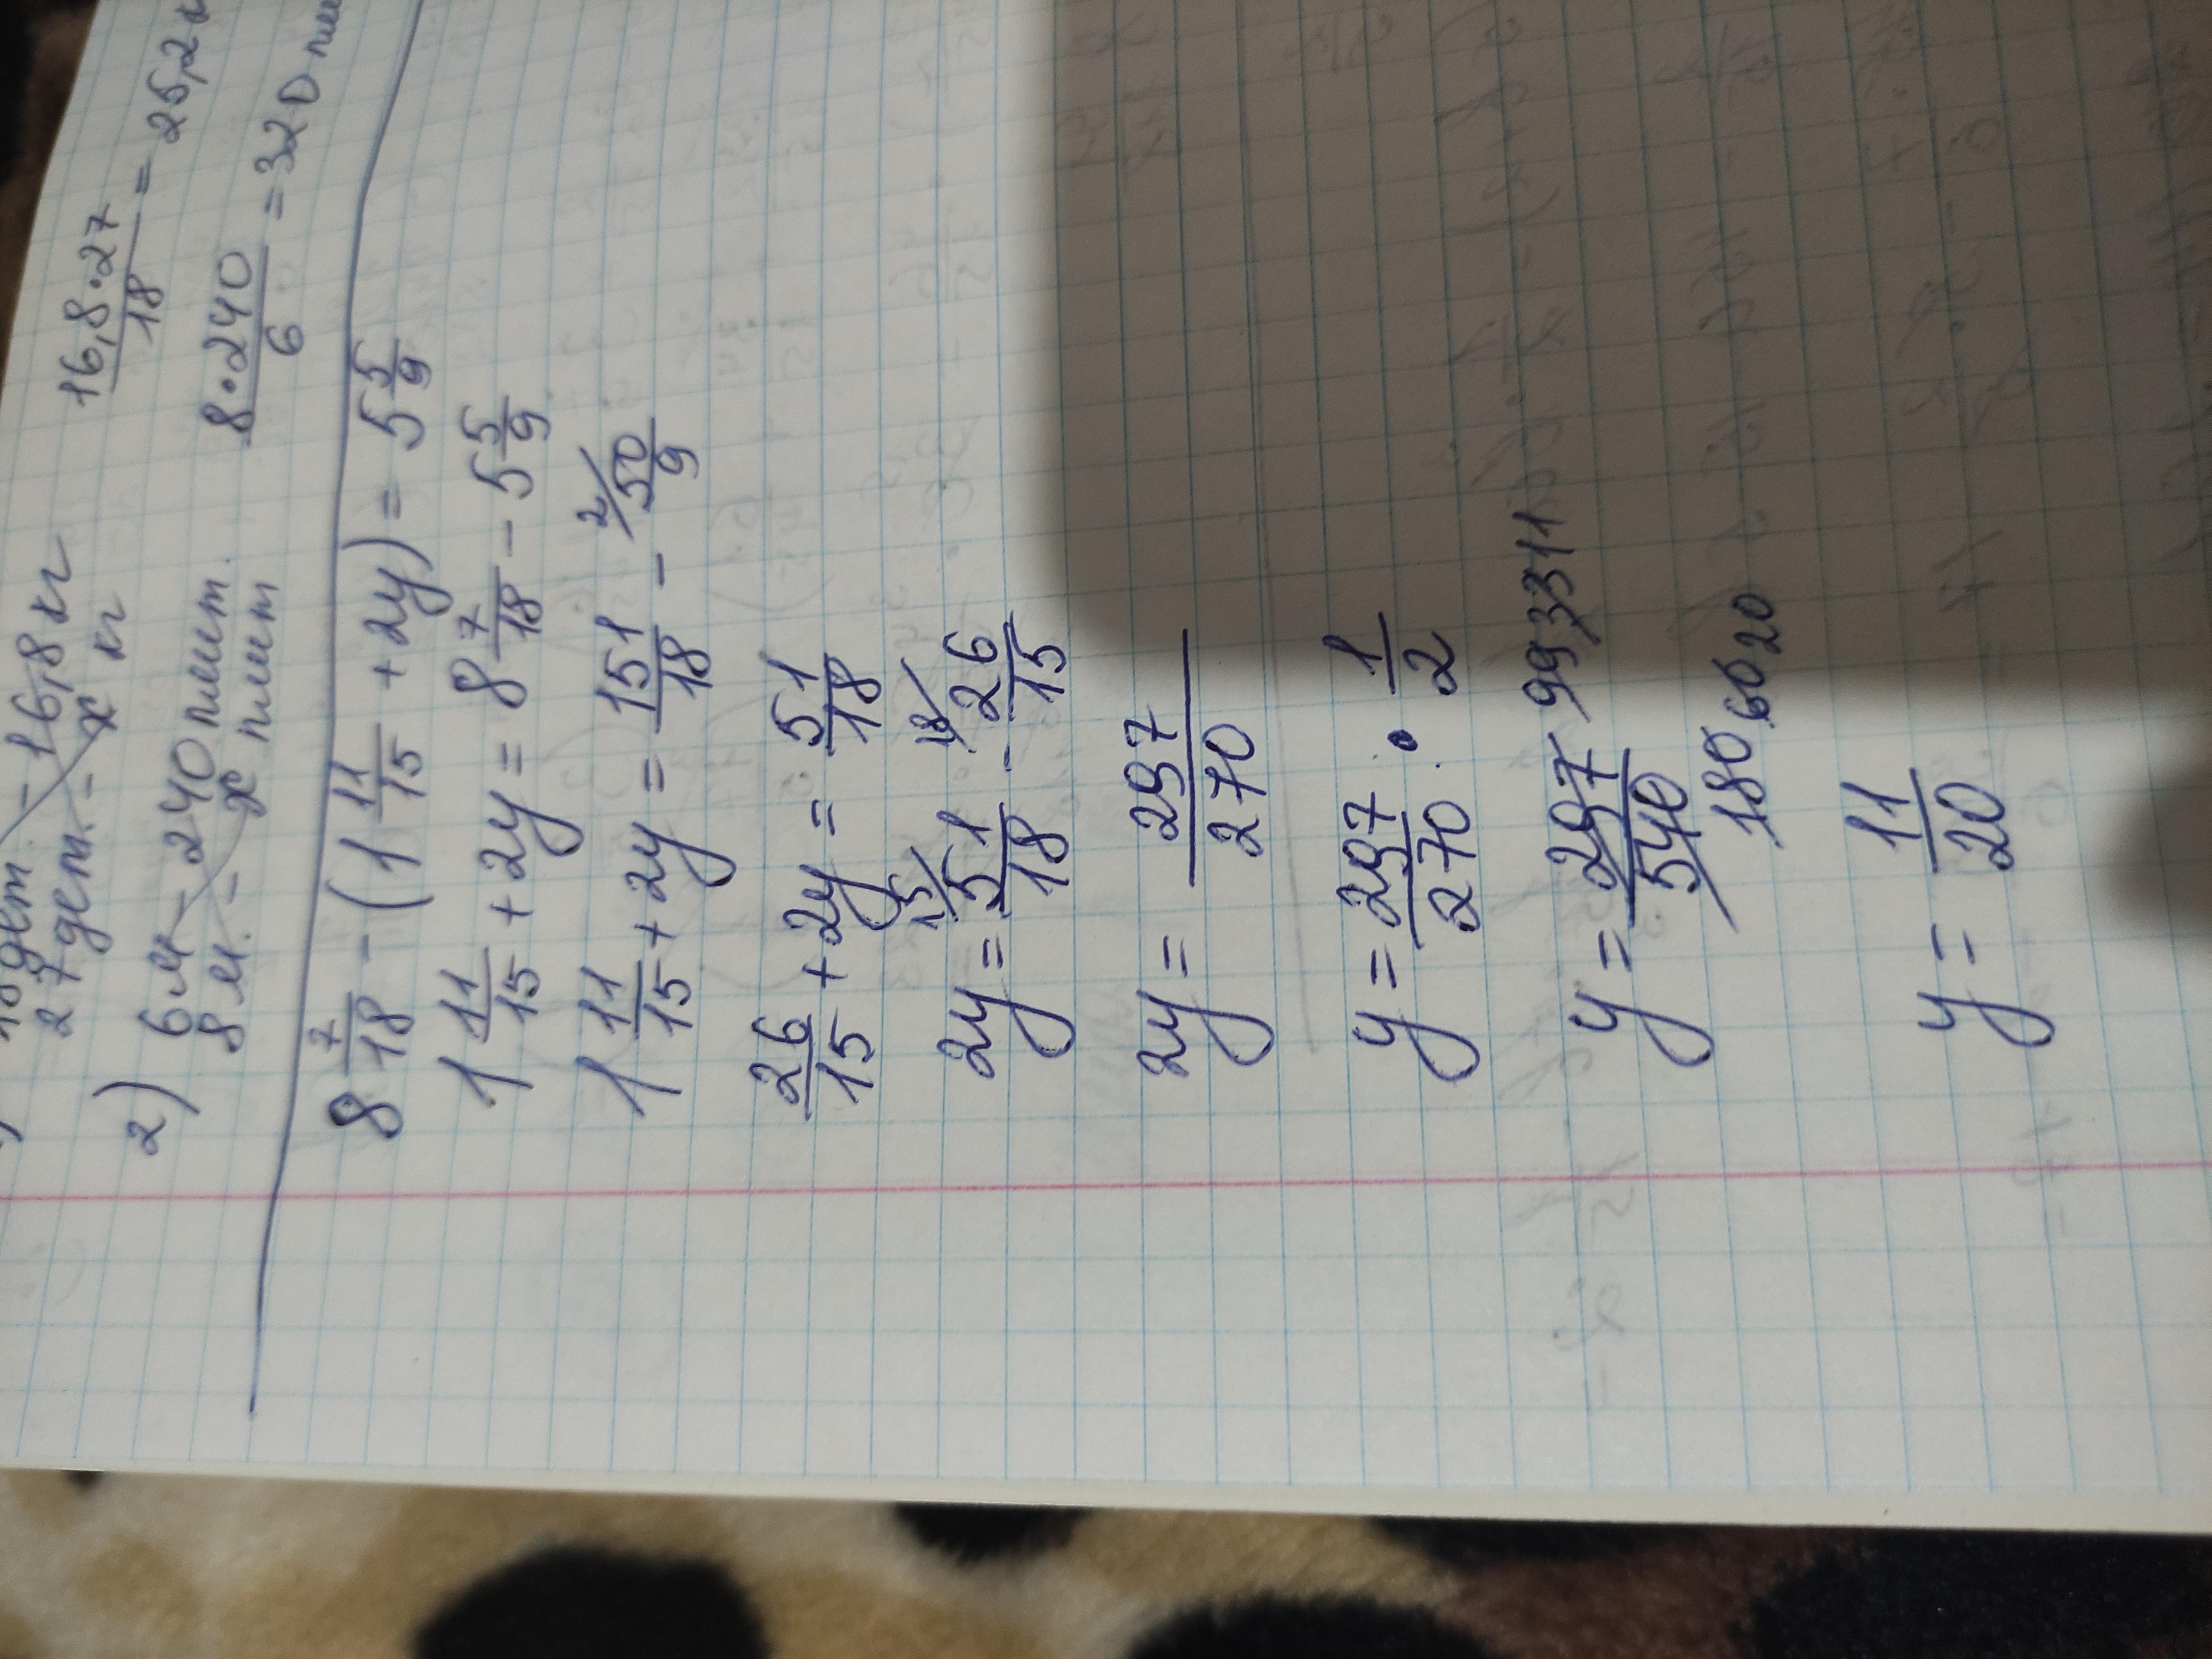 18 дет. - 16,8 кг
27 дет. - x кг
16,8·27/18 = 25,2
2) 6 м - 240 плит.
8 м. - x плит
8·240/6 = 320
8 7/18 - (1 11/15 + 2y) = 5 5/9
1 11/15 + 2y = 8 7/18 - 5 5/9
1 11/15 + 2y = 151/18 - 2/ 50/9
26/15 + 2y = 51/18
2y = 15/ 51/18 - 18/ 26/15
2y = 297/270
y = 297/270 · 1/2
y = 297/540 99 33 11
180 60 20
y = 11/20